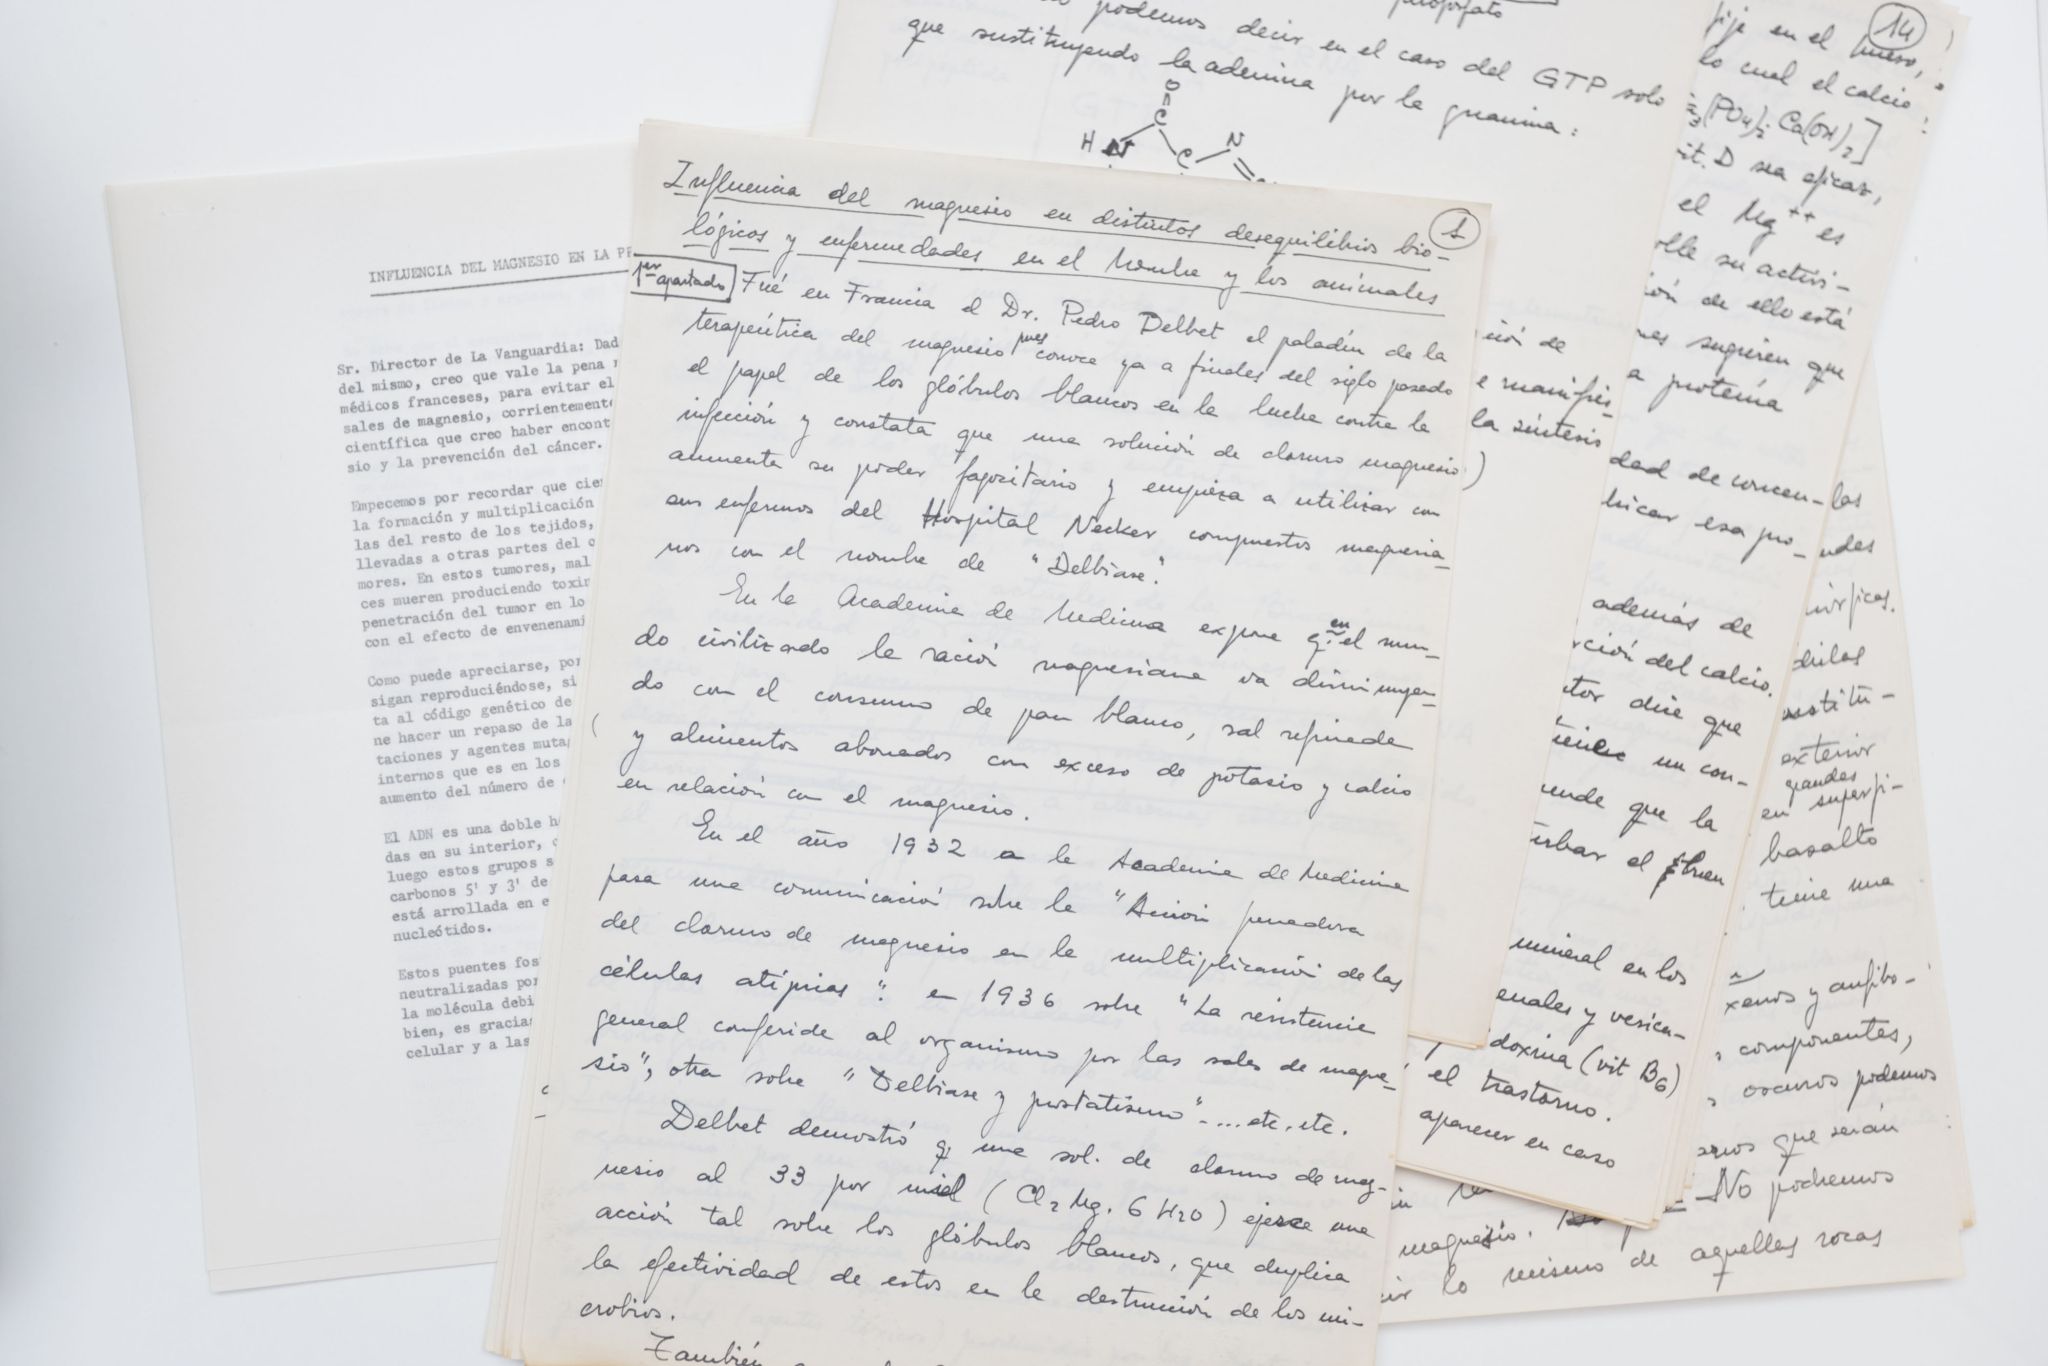 INFLUENCIA DEL MAGNESIO EN LA PR
Sr. Director de La Vanguardia: Dad
del mismo, creo que vale la pena
médicos franceses, para evitar el
sales de magnesio, corrientemente
científica que creo haber encont
sio y la prevención del cáncer.
Empecemos por recordar que cie
la formación y multiplicación
las del resto de los tejidos,
llevadas a otras partes del o
mores. En estos tumores, mal
ces mueren produciendo toxin
penetración del tumor en lo
con el efecto de envenenami
Como puede apreciarse, por
sigan reproduciéndose, si
ta al código genético de
ne hacer un repaso de la
taciones y agentes muta
internos que es en los
aumento del número de
El ADN es una doble h
das en su interior,
luego estos grupos s
carbonos 5' y 3' de
está arrollada en e
nucleótidos.
Estos puentes fos
neutralizadas por
la molécula debi
bien, es gracias
celular y a las
1
Influencia del magnesio en distintos desequilibrios bio-
lógicos y enfermedades en el hombre y los animales
1er apartado Fué en Francia el Dr. Pedro Delbet el paladín de la
terapéutica del magnesio pues conoce ya a finales del siglo pasado
el papel de los glóbulos blancos en la lucha contra la
infección y constata que una solución de cloruro magnesio
aumenta su poder fagocitario y empieza a utilizar con
sus enfermos del Hospital Necker compuestos magnesia-
nos con el nombre de "Delbiase".
En la Academia de Medicina expone q. en el mun-
do civilizado la ración magnesiana va disminuyen-
do con el consumo de pan blanco, sal refinada
y alimentos abonados con exceso de potasio y calcio
en relación con el magnesio.
En el año 1932 a la Academia de Medicina
pasa una comunicación sobre la "Acción
del cloruro de magnesio en la multiplicación de las
células atípicas". en 1936 sobre "La resistencia
general conferida al organismo por las sales de magne-
sio", otra sobre "Delbiase y prostatismo"-...etc. etc.
Delbet demostró q. una sol. de cloruro de mag-
nesio al 33 por mil (Cl2 Mg. 6 H2O) ejerce una
acción tal sobre los glóbulos blancos, que duplica
la efectividad de estos en la destrucción de los mi-
crobios.
También
podemos decir en el caso del GTP solo
que sustituyendo la adenina por la guanina:
O
C
H N
C
N
ción de
e manifies-
la síntesis
14
fije en el hueso,
lo cual el calcio
(PO4)2 Ca(OH)2]
vit. D sea eficaz,
el Mg++ es
olle su activi-
ión de ello está
nes sugieren que
a proteína
dad de concen-
bricar esa pro-
además de
rción del calcio.
utor dice que
tiene un con-
ende que la
turbar el buen
mineral en los
enales y vesicu-
doxina (vit B6)
el trastorno.
aparecer en caso
las
ndes
dulas
nstitu-
exterior
grandes
en superfi-
basalto
tiene una
xenos y anfibo-
componentes,
oscuros podemos
que serán
No podremos
magnesio.
lo mismo de aquellas rocas